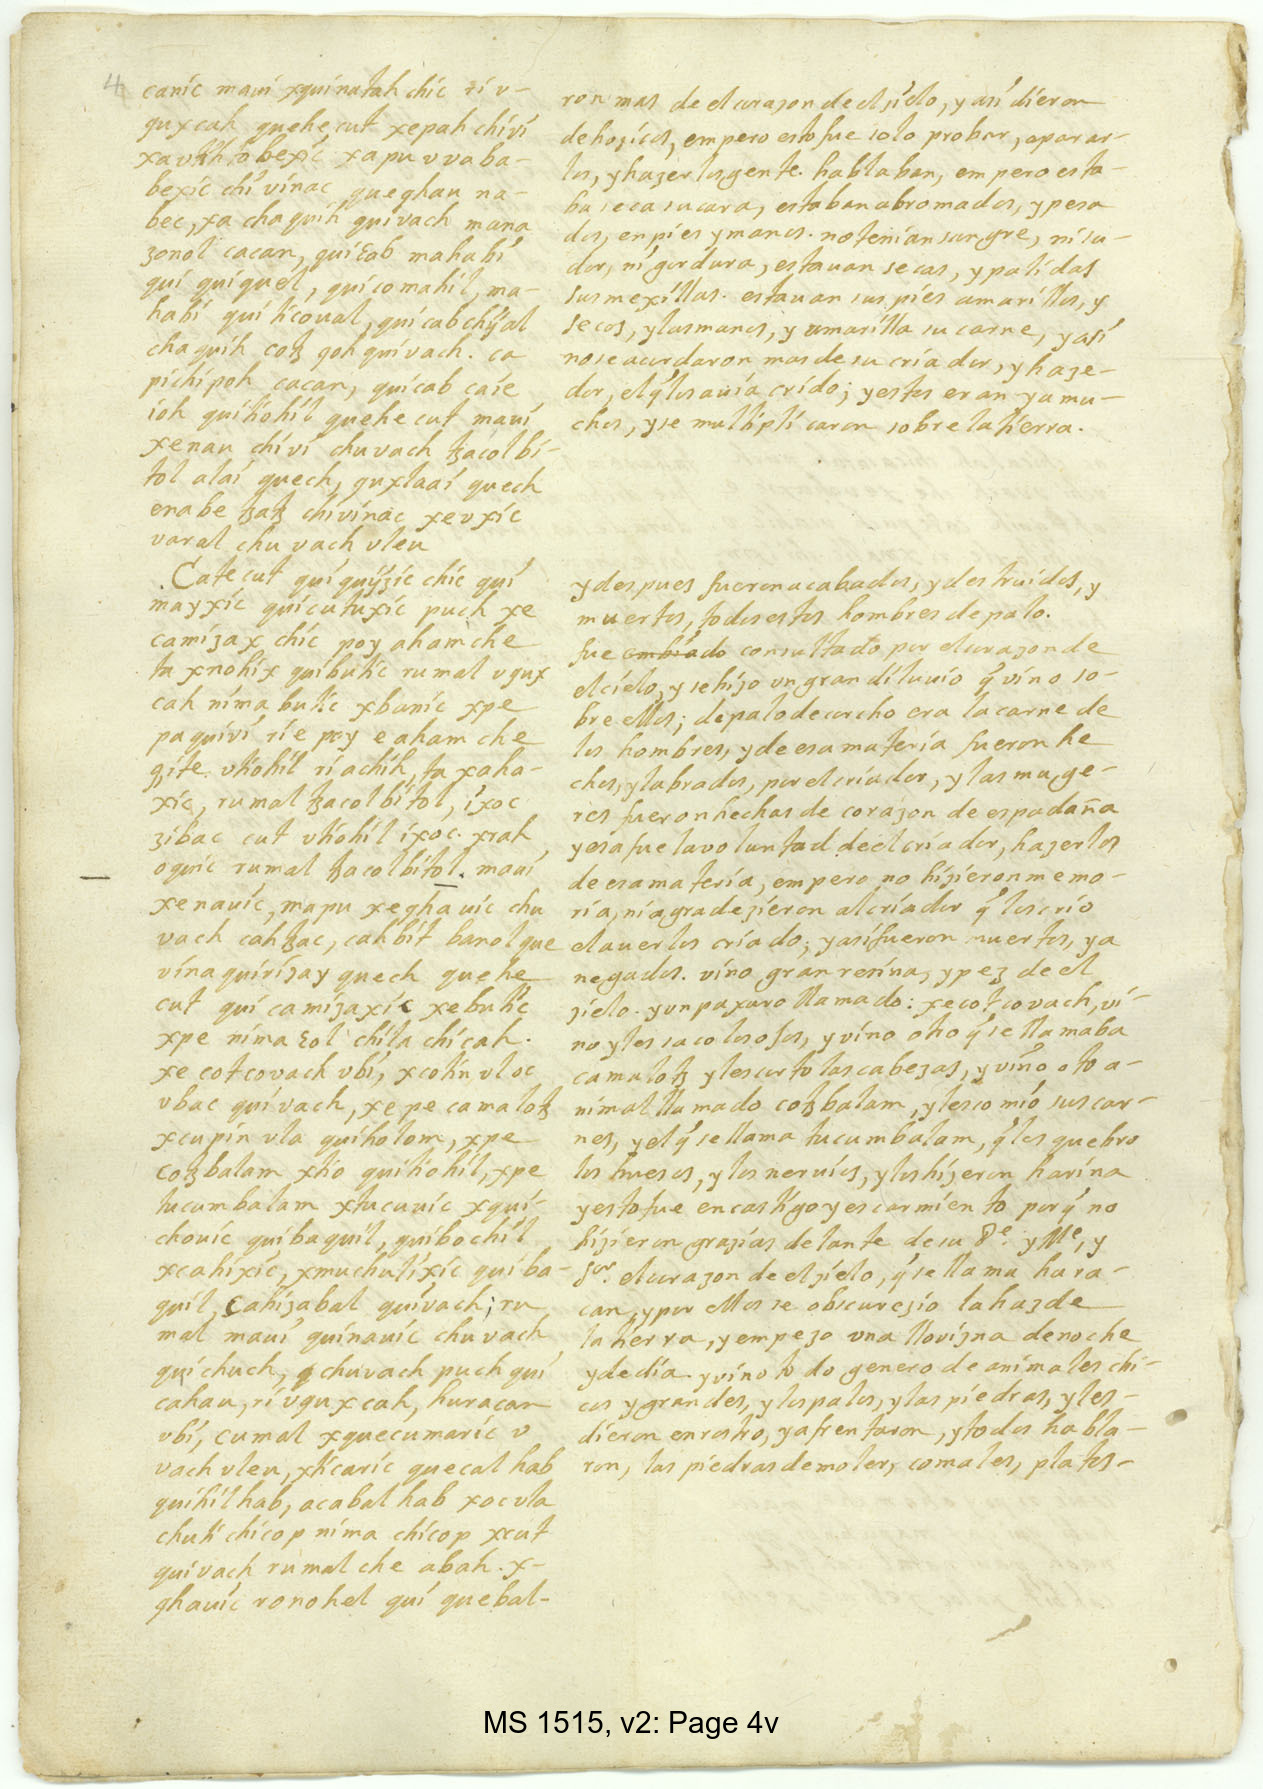 4
caníc mauí xquínatah chíc rí v-
quxcah quehe cut xepah chíví
xavthtobexíc xapu vvaba-
bexíc chí vínac queghau na-
bec, xa chaquíh quívach mana
zonol cacan, quícab mahabí
quí quíquél, quícomahíl, ma-
habí quí tícoual, quícabchíyal
chaquíh cotz qoh quívach. ca
píchípoh cacan, quícab caíe
ioh quítíohíl quehe cut mauí
xenau chíví chuvach tzacol bí-
tol alaí quech, quxlaaí quech
enabe tzatz chívínac xevxíc
varal chu vach vleu
Catecut quíquÿzíc chíc quí
mayxíc quícutuxíc puch xe
camízax chíc poy ahamche
ta xnohíx quíbutíc rumal vqux
cah níma butíc xbaníc xpe
paquíví ríe poy e aham che
zíte. vtíohíl rí achíh, ta xaha-
xíc, rumal tzacol bítol, íxoc
zíbac cut vtíohíl íxoc. xrah
oquíc rumal tzacol bítol. mauí
xenauíc, mapu xeghauíc chu
vach cahtzac, cahbít banol que
vínaquírízay quech quehe
cut quí camízaxíc xebutíc
xpe níma col chíla chícah.
xecotcovach vbí, xcotín vloc
vbac quívach, xepe camalotz
xcupín vla quíholom, xpe
cotzbalam xtío quítíohíl, xpe
tucumbalam xtucuuíc xquí-
chouíc quíbaquíl, quíbochíl
xcahíxíc, xmuchulíxíc quíba-
quíl, cahízabal quívach; ru
mal mauí quínauíc chuvach
quíchuch, chuvach puch quí
cahau, rí vquxcah, huracan
vbí, cumal xquecumaríc v
vach vleu, xtícaríc quecal hab
quíhíl hab, acabal hab xocvla
chutí chícop níma chícop xcut
quívach rumal che abah. x-
ghauíc ronohel quí quebal-
ron mas de el corazon de el zíelo, y así díeron
de hozícos, empero esto fue solo probar, aparar-
los, y hazerlos gente. hablaban, empero esta-
ba seca su cara, estaban abromados, y pesa
dos, en píes y manos. no tenían sangre, ní su-
dor, ní gordura, estauan secas, y palídas
sus mexíllas. estauan sus píes amaríllos, y
secos, y las manos, y amarílla su carne, y así
no se acordaron mas de su críador, y haze-
dor, el q̃ los auía crído; y estos eran ya mu-
chos, y se multíplícaron sobre la tíerra.
y despues fueron acabados, y destruídos, y
muertos, todos estos hombres de palo.
fue embíado consultado por el corazon de
el cíelo, y se hízo vn gran díluuío q̃ víno so-
bre ellos; de palo de corcho era la carne de
los hombres, y de esa matería fueron he
chos, y labrados, por el críador, y las muge-
res fueron hechas de corazon de espadaña
y esa fue la voluntad de el críador, hazerlos
de esa matería, empero no hízíeron memo-
ría, ní agradezíeron al críador q̃ los crío
el auerlos críado; y así fueron muertos, y a
negados. víno gran resína, y pez de el
zíelo. y vn paxaro llamado: xecotcovach, ví-
no y les saco los ojos, y víno otro q̃ se llamaba
camalotz y les corto las cabezas, y víno oto a-
nímal llamado cotzbalam, y les comío sus car-
nes, y el q̃ se llama tucumbalam, q̃ les quebro
los huesos, y los neruíos, y los hízeron harína
y esto fue en castígo y escarmíento por q̃ no
hízíeron grazías delante de su Pe. y Me, y
Sor. el corazon de el zíelo, q̃ se llama hura-
can, y por ellos se obscurezío la haz de
la tíerra, y empezo vna llovízna de noche
y de día. y víno todo genero de anímales chí-
cos y grandes, y los palos, y las píedras, y les-
díeron en rostro, y afrentaron, y todos habla-
ron, las píedras de moler, comales, platos-
MS 1515, v2: Page 4v